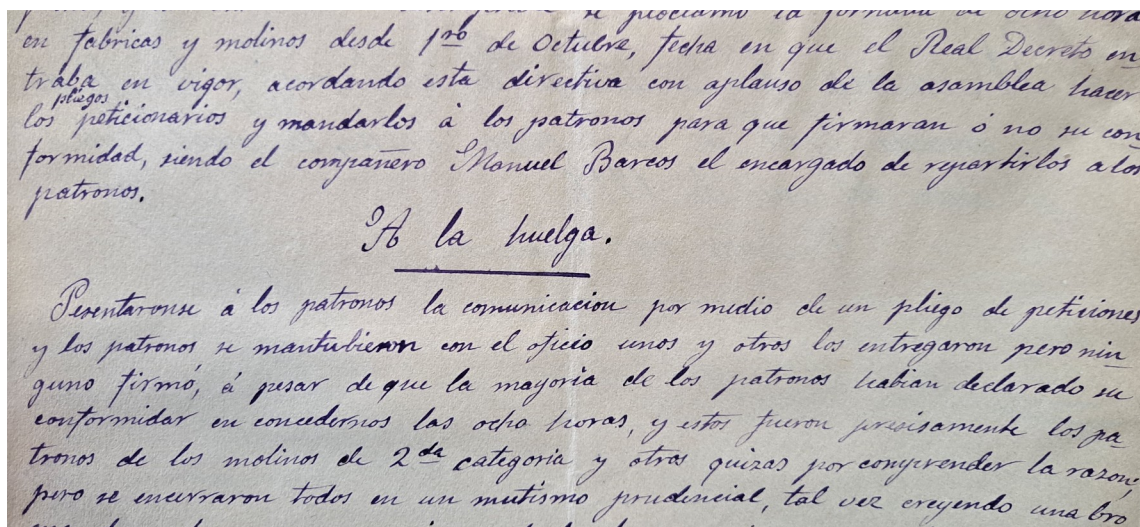 se proclamo la jornada de ocho hora
en fabricas y molinos desde 1ro de Octubre, fecha en que el Real Decreto en
traba en vigor, acordando esta directiva con aplauso de la asamblea hacer
pliegos
los peticionarios y mandarlos á los patronos para que firmaran ó no su con
formidad, siendo el compañero Manuel Barcos el encargado de repartirlos a los
patronos.
A la huelga.
Pesentaronse á los patronos la comunicacion por medio de un pliego de peticiones
y los patronos se mantubieron con el oficio unos y otros los entregaron pero nin
guno firmó, á pesar de que la mayoria de los patronos habian declarado su
conformidar en concedernos las ocho horas, y estos fueron presisamente los pa
tronos de los molinos de 2da categoria y otras quizas por comprender la razon;
pero se encerraron todos en un mutismo prudencial, tal vez creyendo una bro